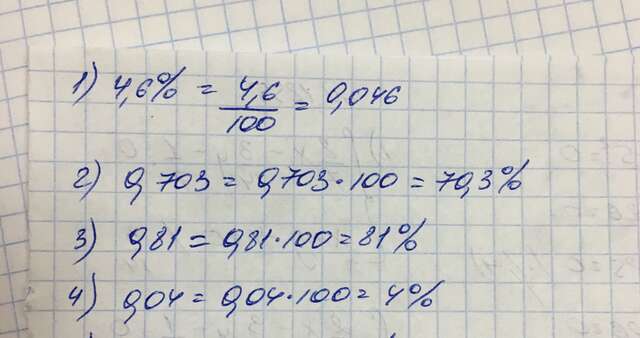 1) 4,6% = 4,6/100 = 0,046
2) 0,703 = 0,703·100 = 70,3%
3) 0,81 = 0,81·100 = 81%
4) 0,04 = 0,04·100 = 4%